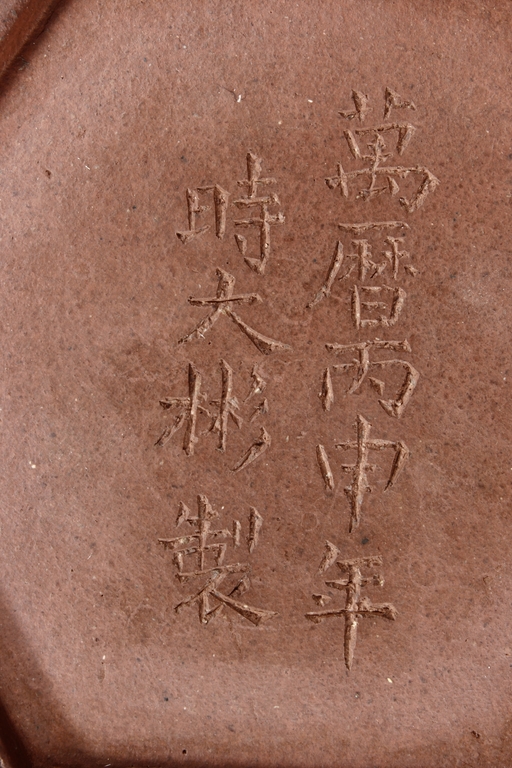 萬曆丙申年
時大彬製